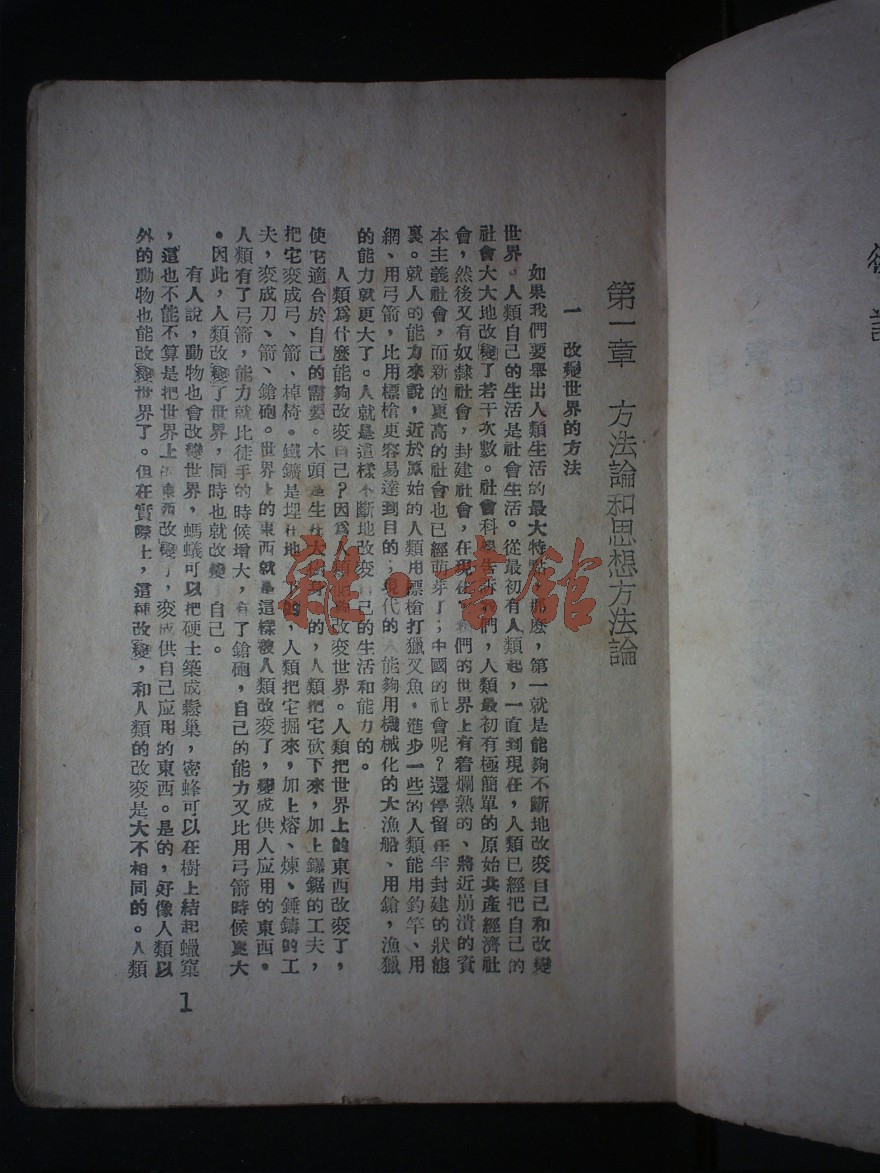 第一章 方法論和思想方法論
一 改變世界的方法
如果我們要舉出人類生活的最大特點,那麽,第一就是能夠不斷地改変自己和改變
世界。人類自己的生活是社會生活。從最初有人類起,一直到現在,人類已經把自己的
社會大大地改變了若干次數。社會科學告訴我們,人類最初有極簡單的原始共產經濟社
會,然後又有奴隸社會,封建社會,在現在,我們的世界上有着爛熟的、將近崩潰的資
本主義社會,而新的更高的社會也已經萌芽了;中國的社會呢?還停留在半封建的狀態
裏。就人的能力來說,近於原始的人類用標槍打獵叉魚,進步一些的人類能用釣竿、用
網、用弓箭,比用標槍更容易達到目的;現代的人能夠用機械化的大漁船、用鎗,漁獵
的能力就更大了。人就是這樣不斷地改変自己的生活和能力的。
人類爲什麽能夠改変自己?因爲人類能夠改変世界。人類把世界上的東西改変了,
使它適合於自己的需要。木頭是生在大樹身上的,人類把它砍下來,加上鏍鋸的工夫,
把它変成弓、箭、棹椅。鐵鑛是埋在地下的,人類把它掘來,加上熔、煉、錘鑄的工
夫,変成刀、箭、鎗砲。世界上的東西就是這樣被人類改変了,變成供人应用的東西。
人類有了弓箭,能力就比徒手的時候增大,有了鎗砲,自己的能力又比用弓箭時候更大
。因此,人類改變了世界,同時也就改變 自己。
有人說,動物也會改變世界,螞蟻可以把硬土築成鬆巢,密蜂可以在樹上結起蠟窠
,這也不能不算是把世界上的東西改變了,変成供自己应用的東西。是的,好像人類以
外的動物也能改變世界了。但在實際上,這種改變,和人類的改変是大不相同的。人類
1
雜·書館